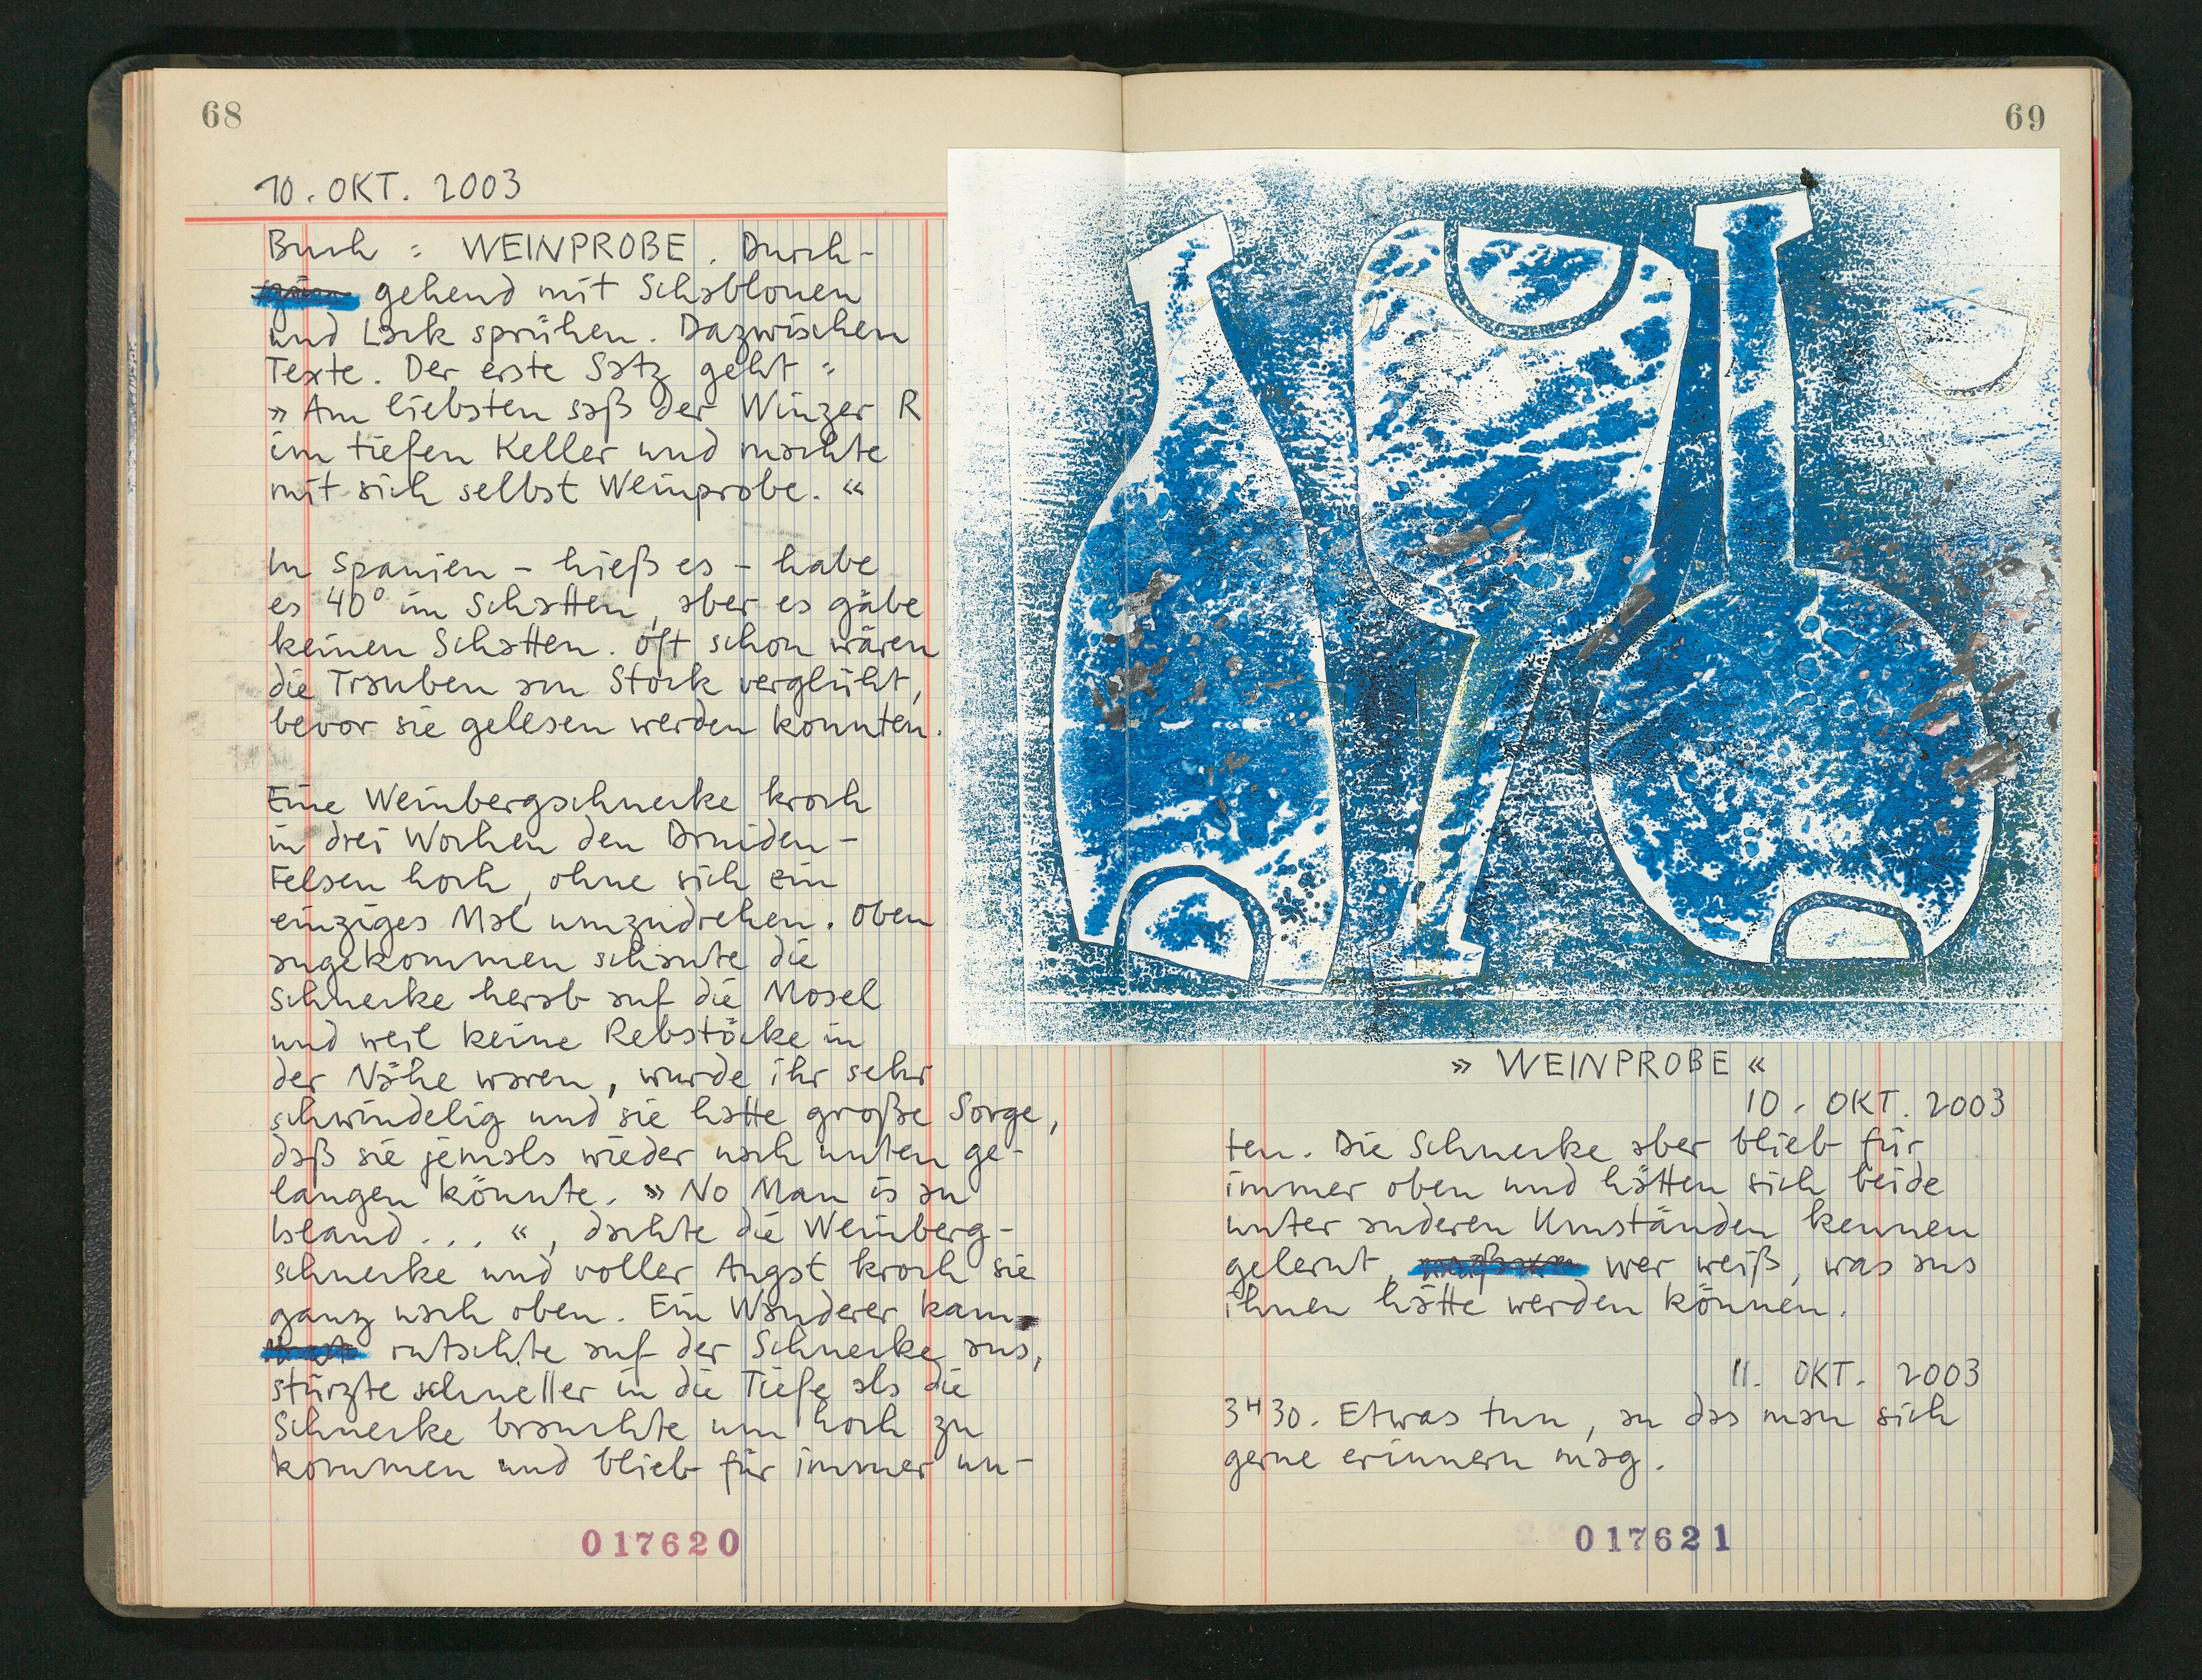 68
10. OKT. 2003
Buch : WEINPROBE. Durch-
gehend mit Schablonen
und Lack sprühen. Dazwischen
Texte. Der erste Satz geht :
» Am liebsten saß der Winzer R
im tiefen Keller und machte
mit sich selbst Weinprobe. «
In Spanien - hieß es - habe
es 40° im Schatten, aber es gäbe
keinen Schatten. Oft schon wären
die Trauben am Stock verglüht,
bevor sie gelesen werden konnten.
Eine Weinbergschnecke kroch
in drei Wochen den Druiden-
Felsen hoch, ohne sich ein
einziges Mal umzudrehen. Oben
angekommen schaute die
Schnecke herab auf die Mosel
und weil keine Rebstöcke in
der Nähe waren, wurde ihr sehr
schwindelig und sie hatte große Sorge,
daß sie jemals wieder nach unten ge-
langen könnte. » No Man is an
Island ... «, dachte die Weinberg-
schnecke und voller Angst kroch sie
ganz nach oben. Ein Wanderer kam
rutschte auf der Schnecke aus,
stürzte schneller in die Tiefe als die
Schnecke brauchte um hoch zu
kommen und blieb für immer un-
017620
69
» WEINPROBE «
10. OKT. 2003
ten. Die Schnecke aber blieb für
immer oben und hätten sich beide
unter anderen Umständen kennen
gelernt, wer weiß, was aus
ihnen hätte werden können.
11. OKT. 2003
3H30. Etwas tun, an das man sich
gerne erinnern mag.
017621